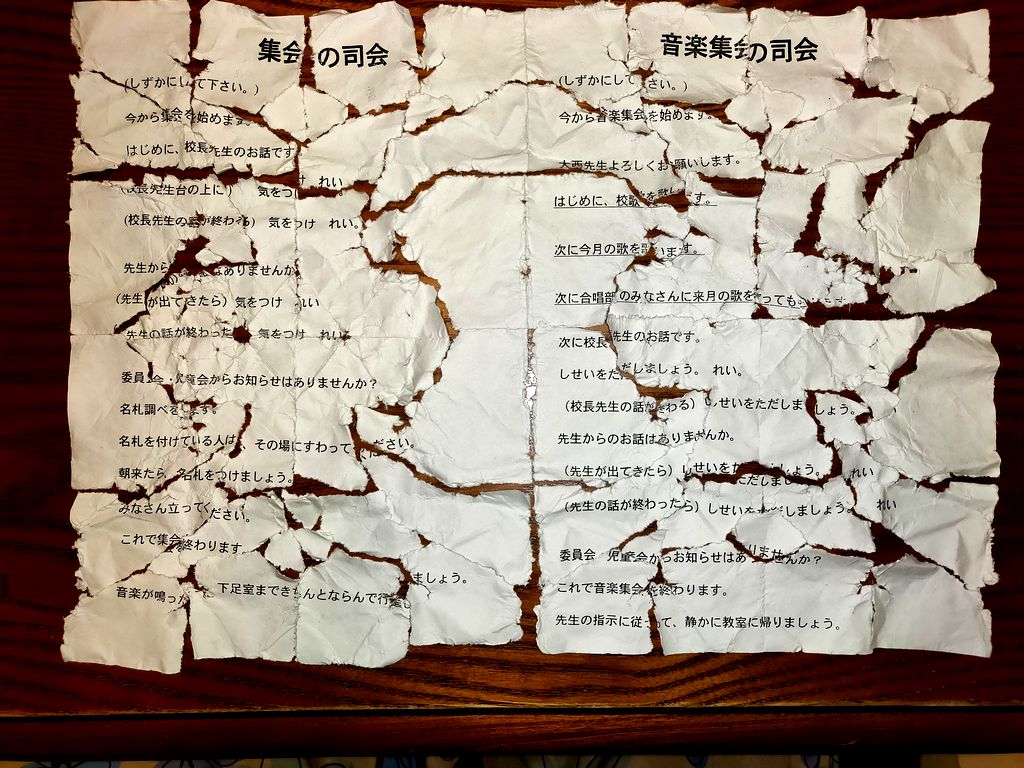 集会の司会
(しずかにして下さい。)
今から集会を始めます。
はじめに、校長先生のお話です
け れい。
(校長先生台の上に) 気をつ
(校長先生の話が終わる) 気をつけ れい。
先生から なありませんか
(先生が出てきたら) 気をつけ れい
先生の話が終わった 気をつけ れい
委員会・児童会からお知らせはありませんか?
名札調べを します。
名札を付けている人は、その場にすわってください。
朝来たら、名札をつけましょう。
みなさん立ってください。
これで集会を終わります。
音楽が鳴った 下足室まできちんとならんで行 ましょう。
音楽集会の司会
(しずかにして さい。)
今から音楽集会を始めます。
大西先生よろしくお願いします。
はじめに、校歌を歌 す。
次に今月の歌を歌います。
次に合唱部のみなさんに来月の歌を っても
次に校長先生のお話です。
しせいをただしましょう。 れい。
(校長先生の話が終わる) しせいをただしましょう。
先生からのお話はありませんか。
(先生が出てきたら) しせいをただしましょう。 れい
(先生の話が終わったら) しせいを だしましょう。 れい
委員会・児童会からお知らせはありませんか?
これで音楽集会を終わります。
先生の指示に従って、静かに教室に帰りましょう。